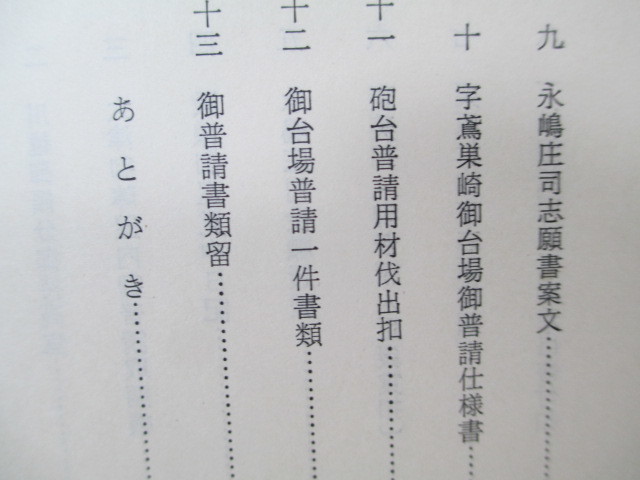 九 永嶋庄司志願書案文…………
十 字鳶巣崎御台場御普請仕様書……
十一 砲台普請用材伐出扣…………
十二 御台場普請一件書類…………
十三 御普請書類留…………
あとがき…………